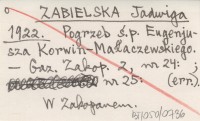 ZABIELSKA Jadwiga
1922. Pogrzeb ś.p. Eugenju-
sza Korwin-Małaczewskiego.
- Gaz. Zakop. 2, nr 24:
nr 25: (err.)
W Zakopanem.